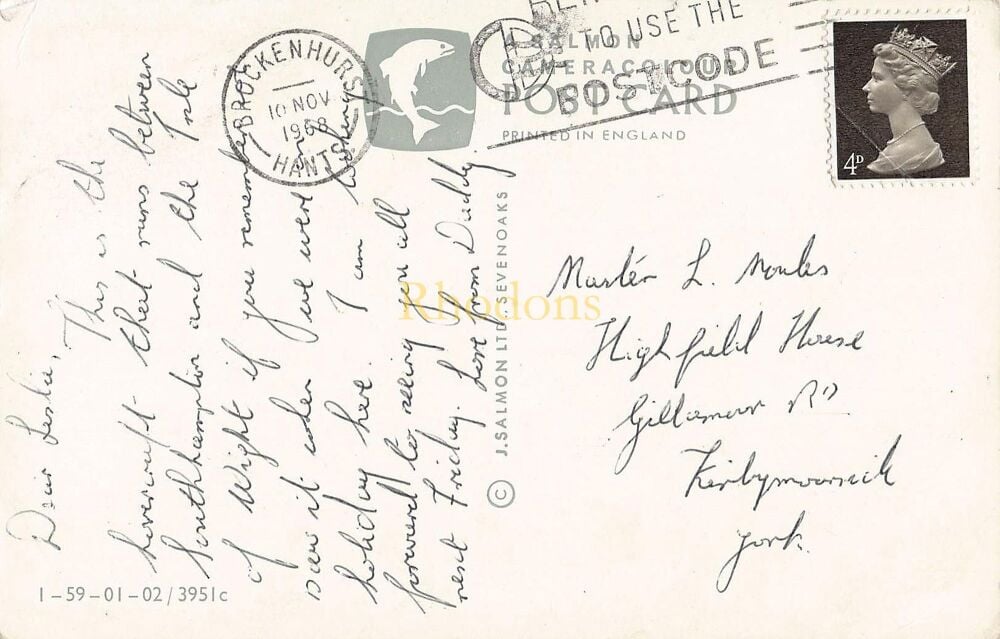 Dear Leslie,
This is the
hovercraft that runs between
Southhampton and the Isle
of Wight if you remember
saw it when we were on
holiday here. I am
forward to seeing you all
next Friday. Love from Daddy
BROCKENHURST
10 NOV
HANTS
TO USE THE
POSTCODE
A SALMON
CAMERACOLOUR
POST CARD
PRINTED IN ENGLAND
© J. SALMON LTD. SEVENOAKS
4D
Master L.
Highfield House
Gillamoor RD
Kirbymoorside
York.
1-59-01-02/3951c
Rhodons